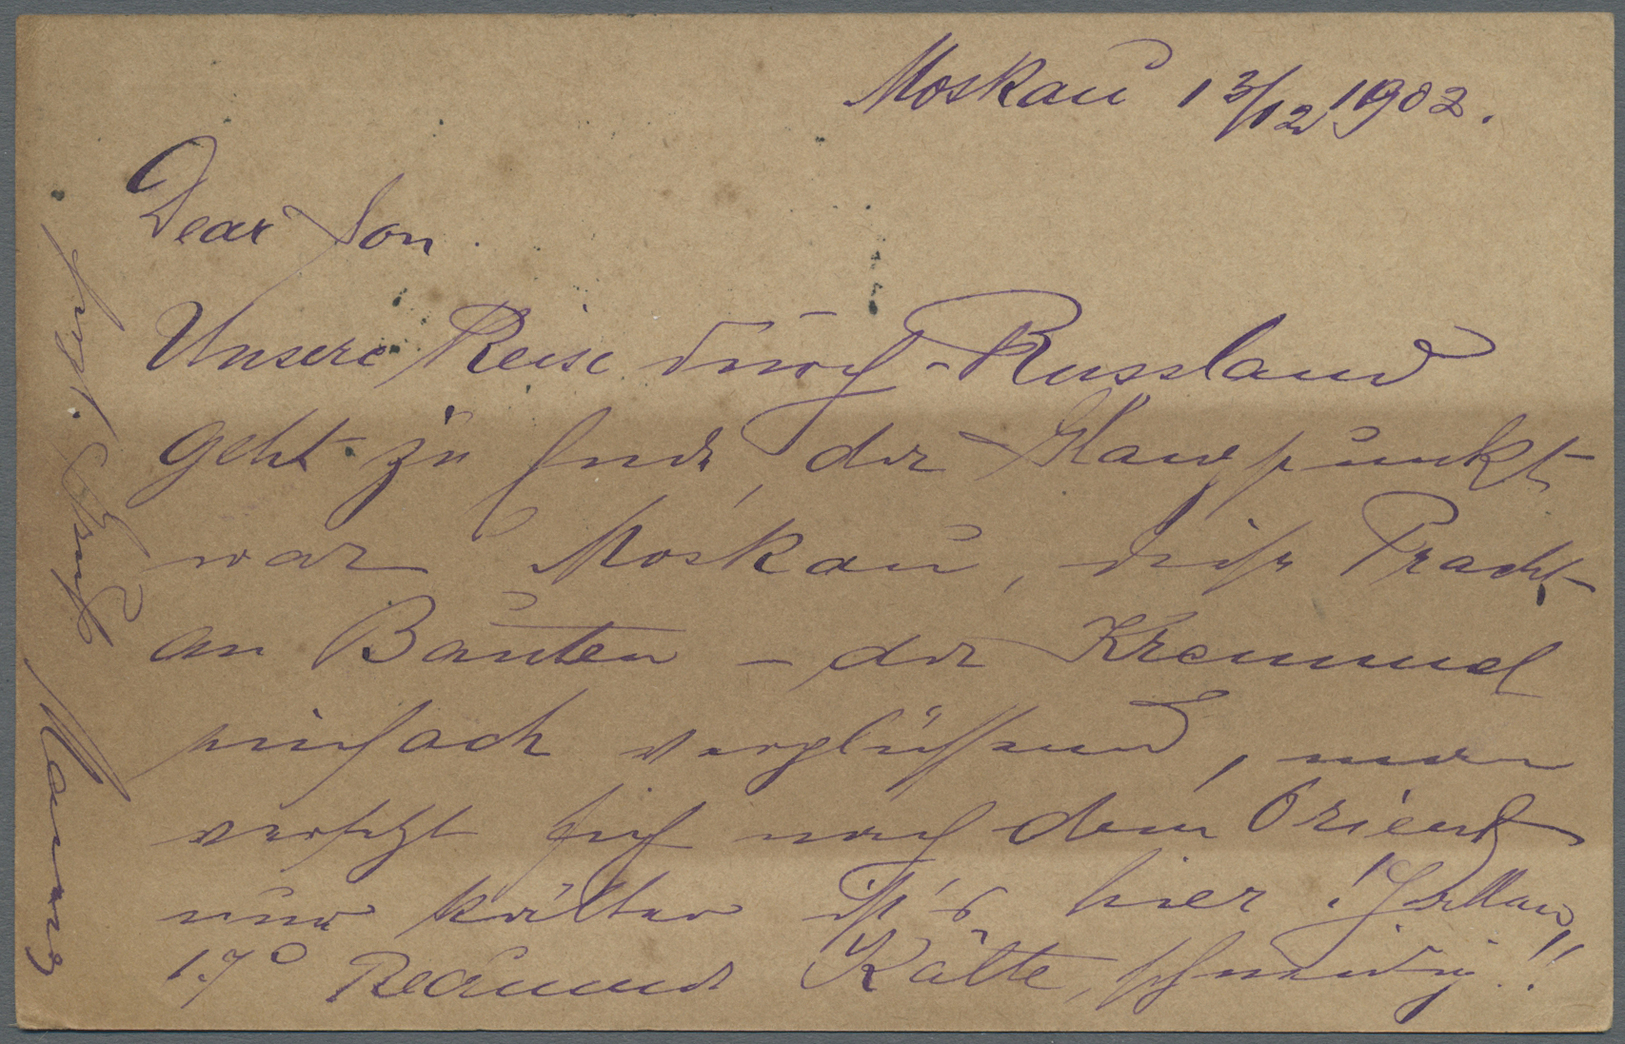 Moskau 13/12 1902.
Dear Son.
Unsere Reise durch Russland
geht zu Ende, der Glanzpunkt
war Moskau, diese Pracht
an Bauten – der Kremmel
einfach verblüffend, man
versetzt sich nach dem Orient
nur kälter ist's hier!
17° Reaumur Kälte, schneidig!!
herzl. Gruß